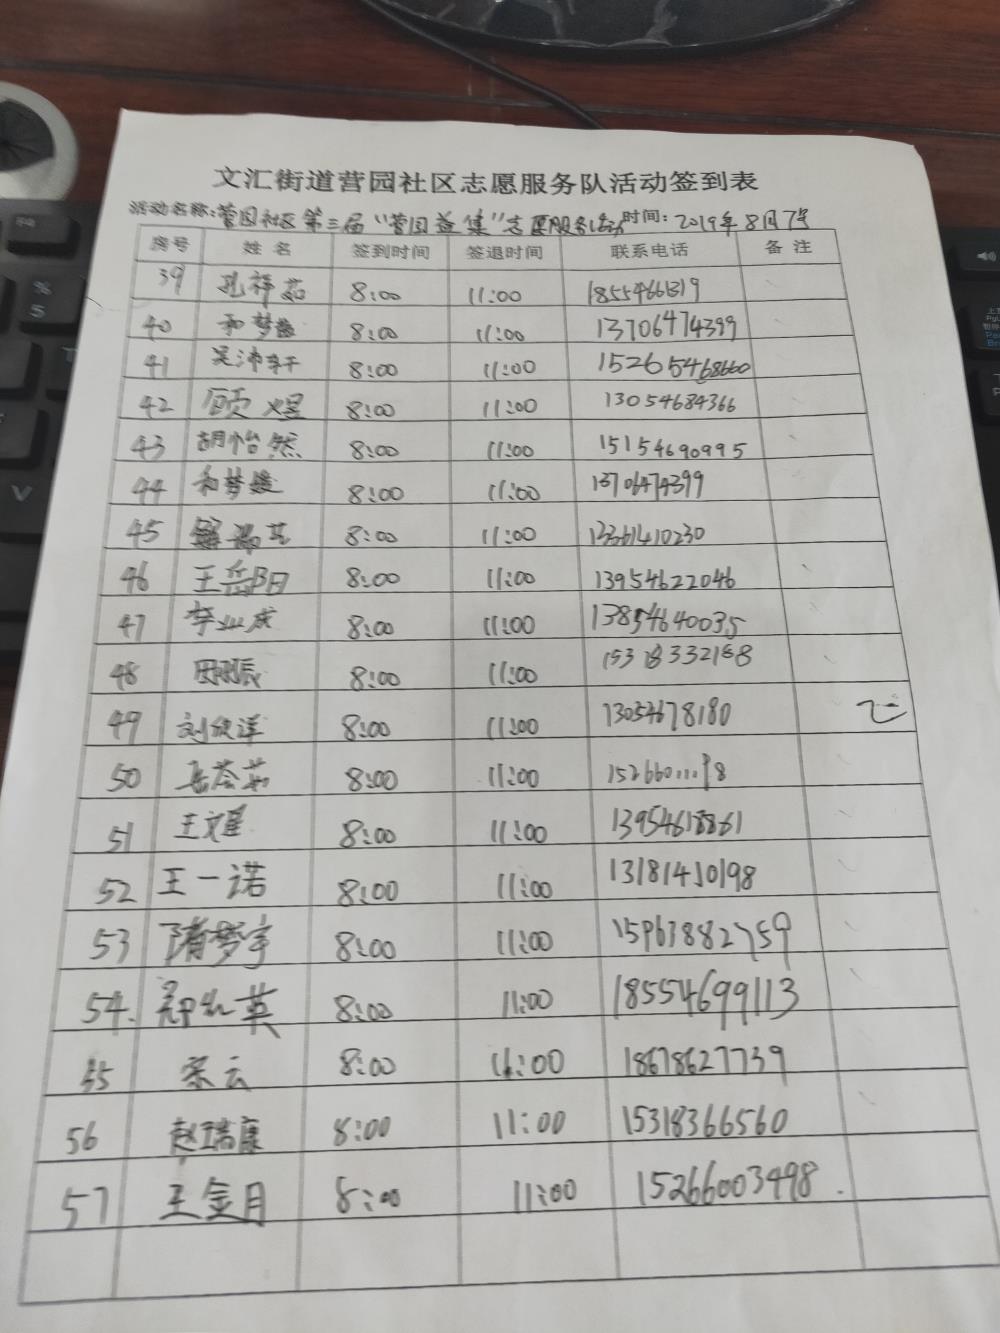 文汇街道营园社区志愿服务队活动签到表
活动名称:营园社区第三届“营园益集”志愿服务活动 时间:2019年8月7号
序号 姓名 签到时间 签退时间 联系电话 备注
39 孔祥茹 8:00 11:00
40 和梦 8:00 11:00 13706474399
41 吴沛轩 8:00 11:00 15265468660
42 顾煜 8:00 11:00 13054684366
43 胡怡然 8:00 11:00 15154690995
44 和梦媛 8:00 11:00 13706474399
45 8:00 11:00 13361410230
46 王岳阳 8:00 11:00 13954622046
47 李业成 8:00 11:00 13854640035
48 8:00 11:00 15318332168
49 刘欣洋 8:00 11:00 13054678180
50 8:00 11:00
51 王文 8:00 11:00
52 王一诺 8:00 11:00 13181410198
53 隋梦宇 8:00 11:00 15963882759
54. 英 8:00 11:00 18554699113
55 宋云 8:00 11:00 18678627739
56 赵瑞康 8:00 11:00 15318366560
57 王金月 8:00 11:00 15266003498.